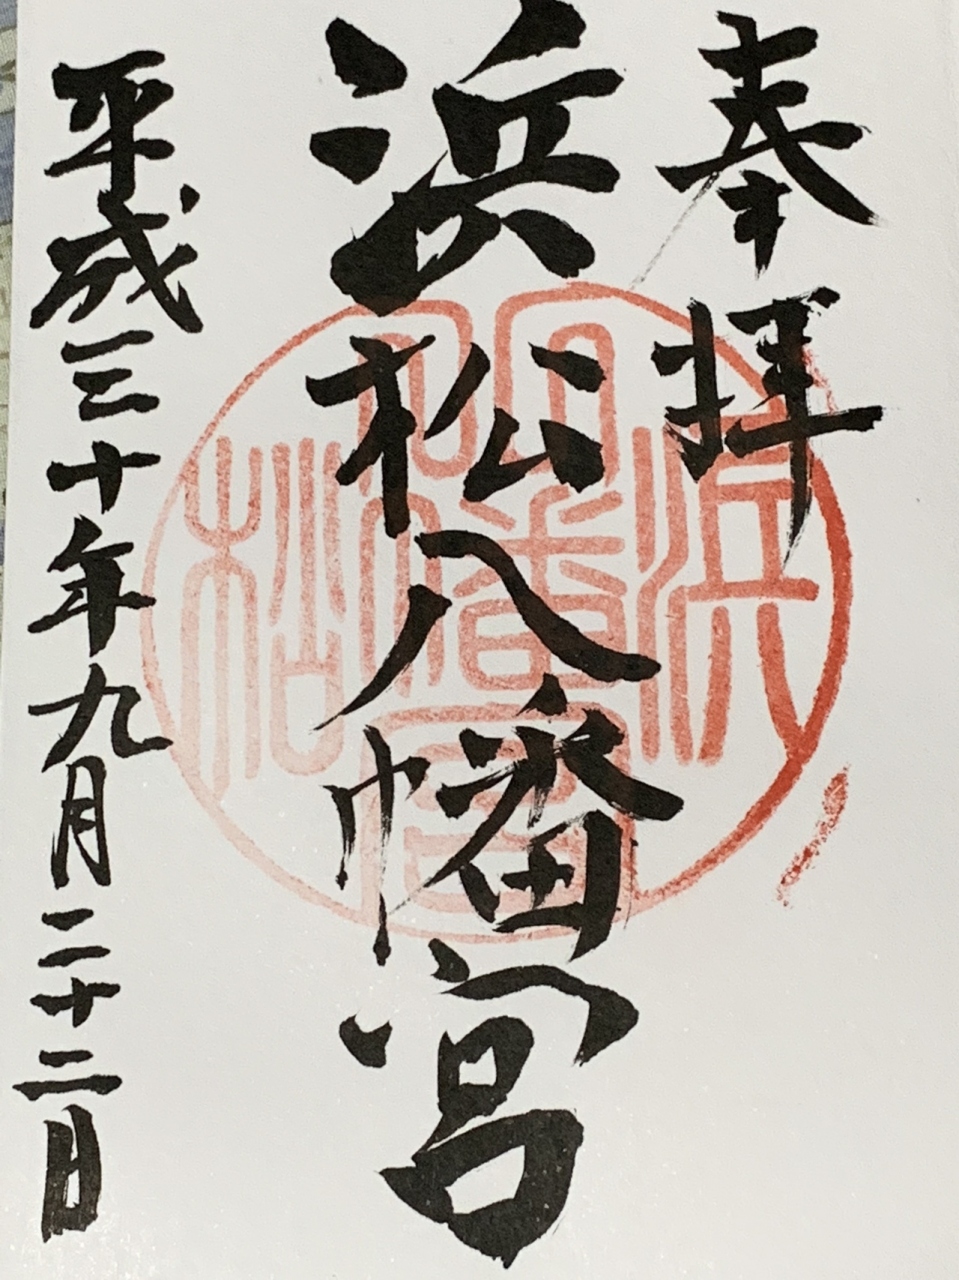 奉拝
浜松八幡宮
平成三十年九月二十二日
浜松
八幡宮